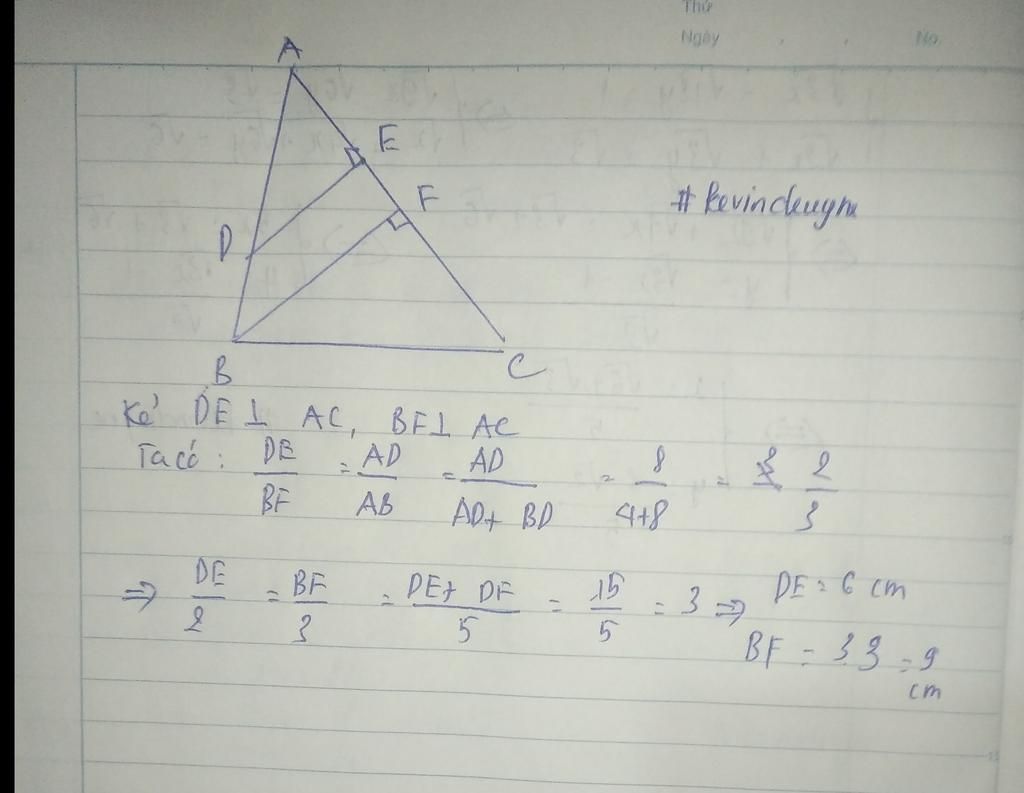 Thứ
Ngày . . No.
A
E
F
#kevinchugm
D
B
C
Kẻ DE ⊥ AC, BF ⊥ AC
Ta có: DE/BF = AD/AB = AD/AD+ BD = 8/4+8 = 2/3
⇒ DE/2 = BF/3 = DE+ DF/5 = 15/5 = 3 ⇒ DE = 6 cm
BF = 3.3 = 9
cm